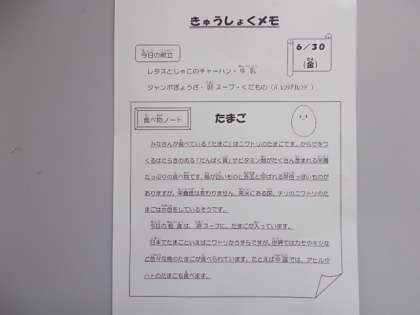 きゅうしょくメモ
6/30
(金)
今日の献立
レタスとじゃこのチャーハン・牛乳
ジャンボぎょうざ・卵スープ・くだもの(バレンシアオレンジ)
食べ物ノート
たまご
みなさんが食べている「たまご」はニワトリのたまごです。からだをつ
くるはたらきのある「たんぱく質」やビタミン類がたくさん含まれる栄養
たっぷりの食べ物です。殻が白いものと赤玉と呼ばれる茶色っぽいものが
ありますが、栄養価は変わりません。南米にある国、チリのニワトリのた
まごは水色をしているそうです。
今日の給食は、卵スープに、たまごが入っています。
日本でたまごといえばニワトリかうずらですが、世界ではカモやキジな
ど色々な鳥のたまごが食べられています。たとえば中国では、アヒルや
ハトのたまごも食べます。